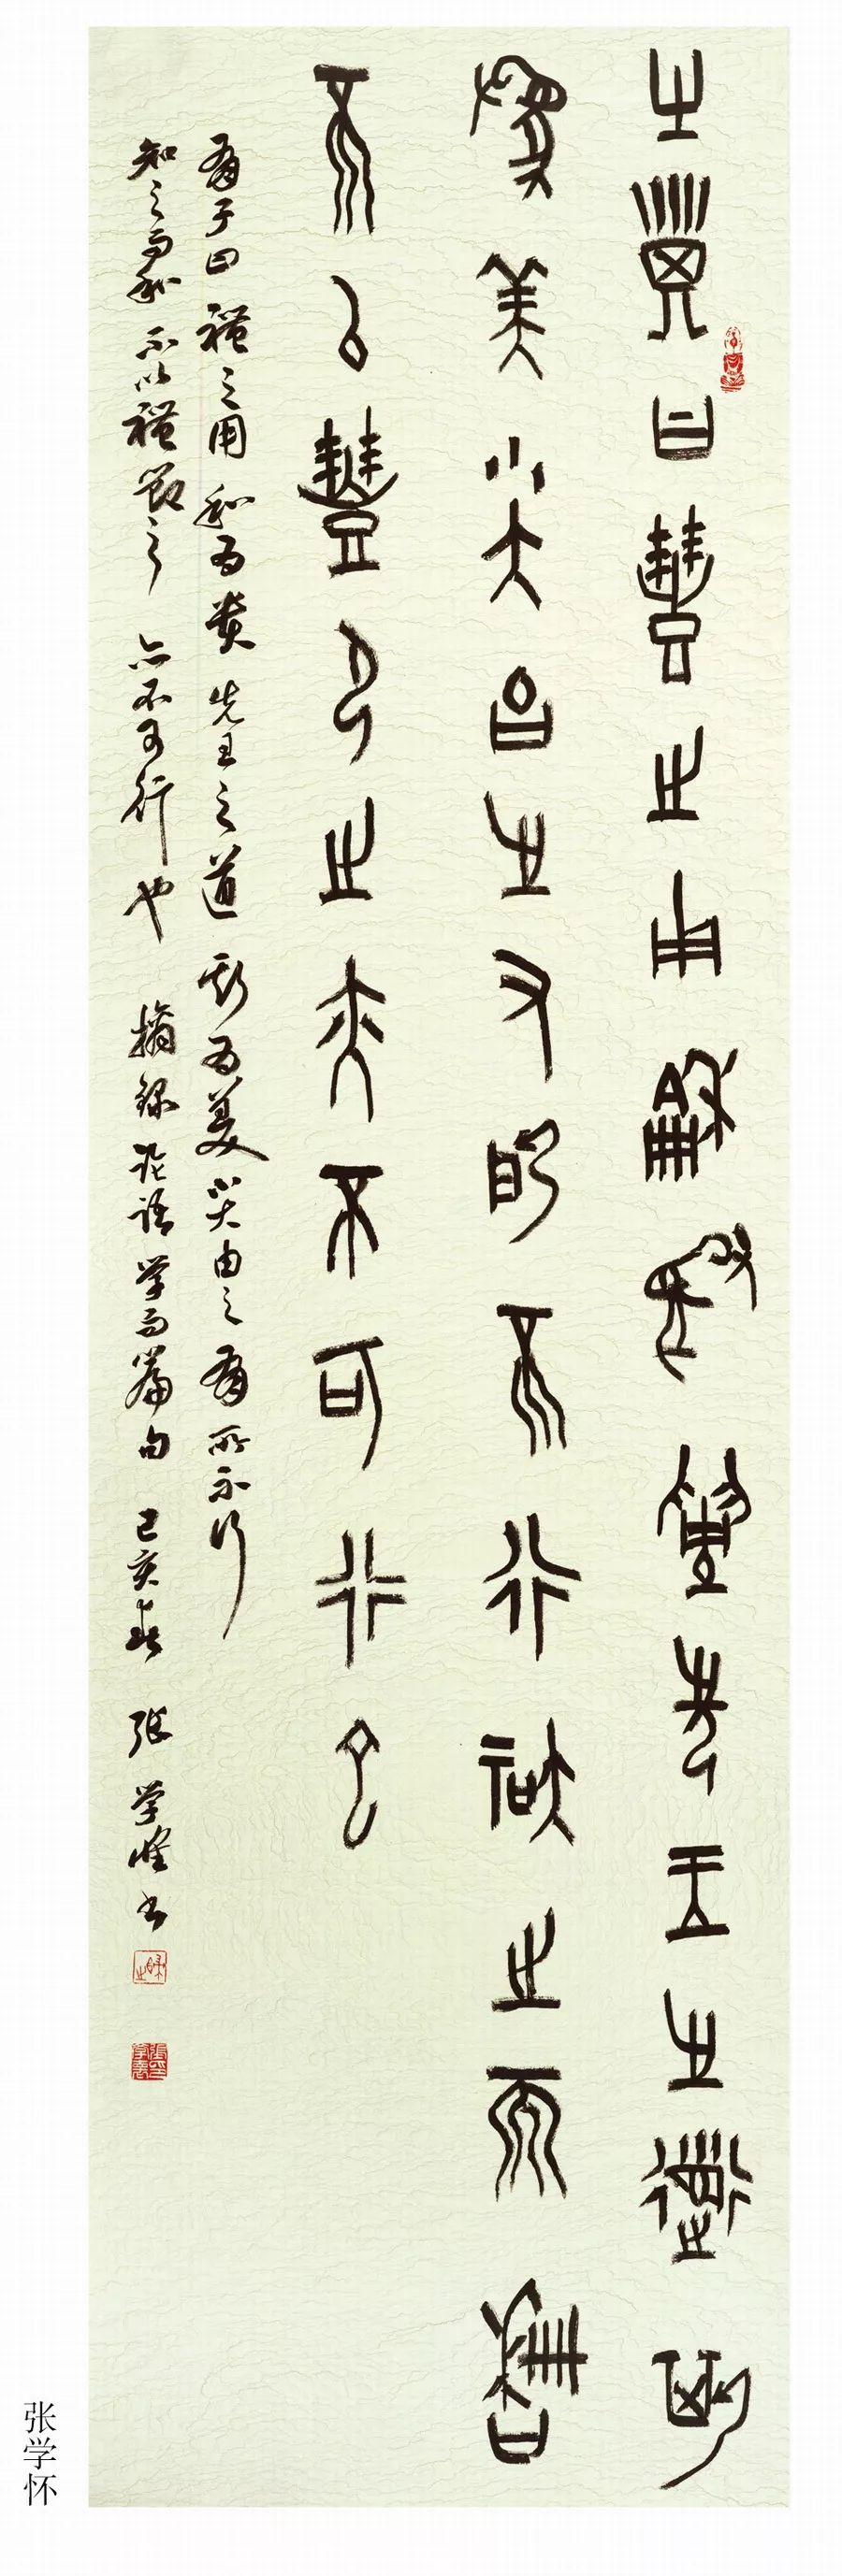 㞢子曰豊之用龢為貴先王之道斯
為美小大由之又所不行知之而龢
不以豊節之亦不可行也
有子曰禮之用和为贵先王之道斯为美小大由之有所不行
知之而和不以禮節之亦不可行也摘録论语学而篇句己亥春张学怀书
张学怀